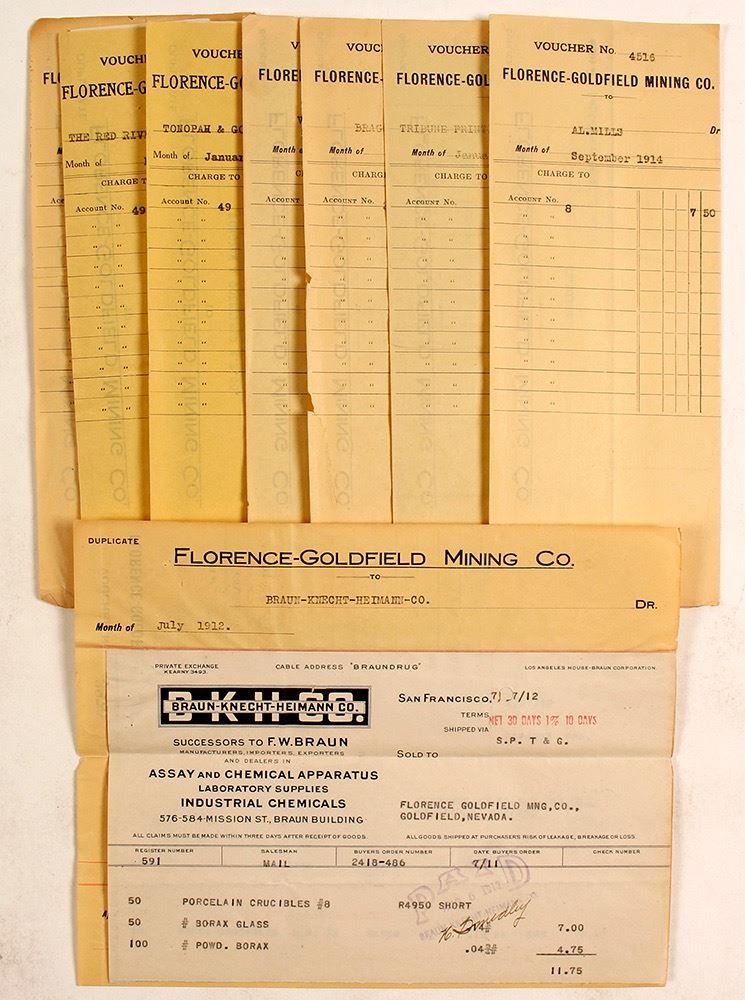 VOUCH
FLORENCE-G
THE RED RIV
Month of
CHARGE T
Account No. 49
VOUCHE
FLORENCE-G
TONOPAH & GO
Month of Januar
CHARGE TO
Account No. 49
V
FLORE
Month o
CHA
Account
VOUC
FLORENCE-
BRAG
Month of
CHARG
Account No.
VOUCHER
FLORENCE-GOL
TRIBUNE PRINT
Month of Janua
CHARGE TO
Account No.
VOUCHER No. 4516
FLORENCE-GOLDFIELD MINING CO.
TO
AL.MILLS Dr
Month of September 1914
CHARGE TO
Account No. 8 7 50
DUPLICATE
FLORENCE-GOLDFIELD MINING CO.
TO
BRAUN-KNECHT-HEIMANN-CO. DR.
Month of July 1912.
PRIVATE EXCHANGE
KEARNY 3493
CABLE ADDRESS "BRAUNDRUG"
LOS ANGELES HOUSE-BRAUN CORPORATION.
B-K-H-CO.
BRAUN-KNECHT-HEIMANN CO.
SAN FRANCISCO, 7/ 7/12
TERMS NET 30 DAYS 1% 10 DAYS
SHIPPED VIA S.P. T & G.
SUCCESSORS TO F.W.BRAUN
MANUFACTURERS, IMPORTERS, EXPORTERS
AND DEALERS IN
SOLD TO
ASSAY AND CHEMICAL APPARATUS
LABORATORY SUPPLIES
INDUSTRIAL CHEMICALS
576-584-MISSION ST., BRAUN BUILDING
FLORENCE GOLDFIELD MNG,CO.,
GOLDFIELD,NEVADA.
ALL CLAIMS MUST BE MADE WITHIN THREE DAYS AFTER RECEIPT OF GOODS.
ALL GOODS SHIPPED AT PURCHASERS RISK OF LEAKAGE, BREAKAGE OR LOSS.
REGISTER NUMBER SALESMAN BUYERS ORDER NUMBER DATE BUYERS ORDER CHECK NUMBER
591 MAIL 2418-486 7/11
PAID
50 PORCELAIN CRUCIBLES #8 R4950 SHORT
50 # BORAX GLASS 7.00
100 # POWD. BORAX 4.75
11.75